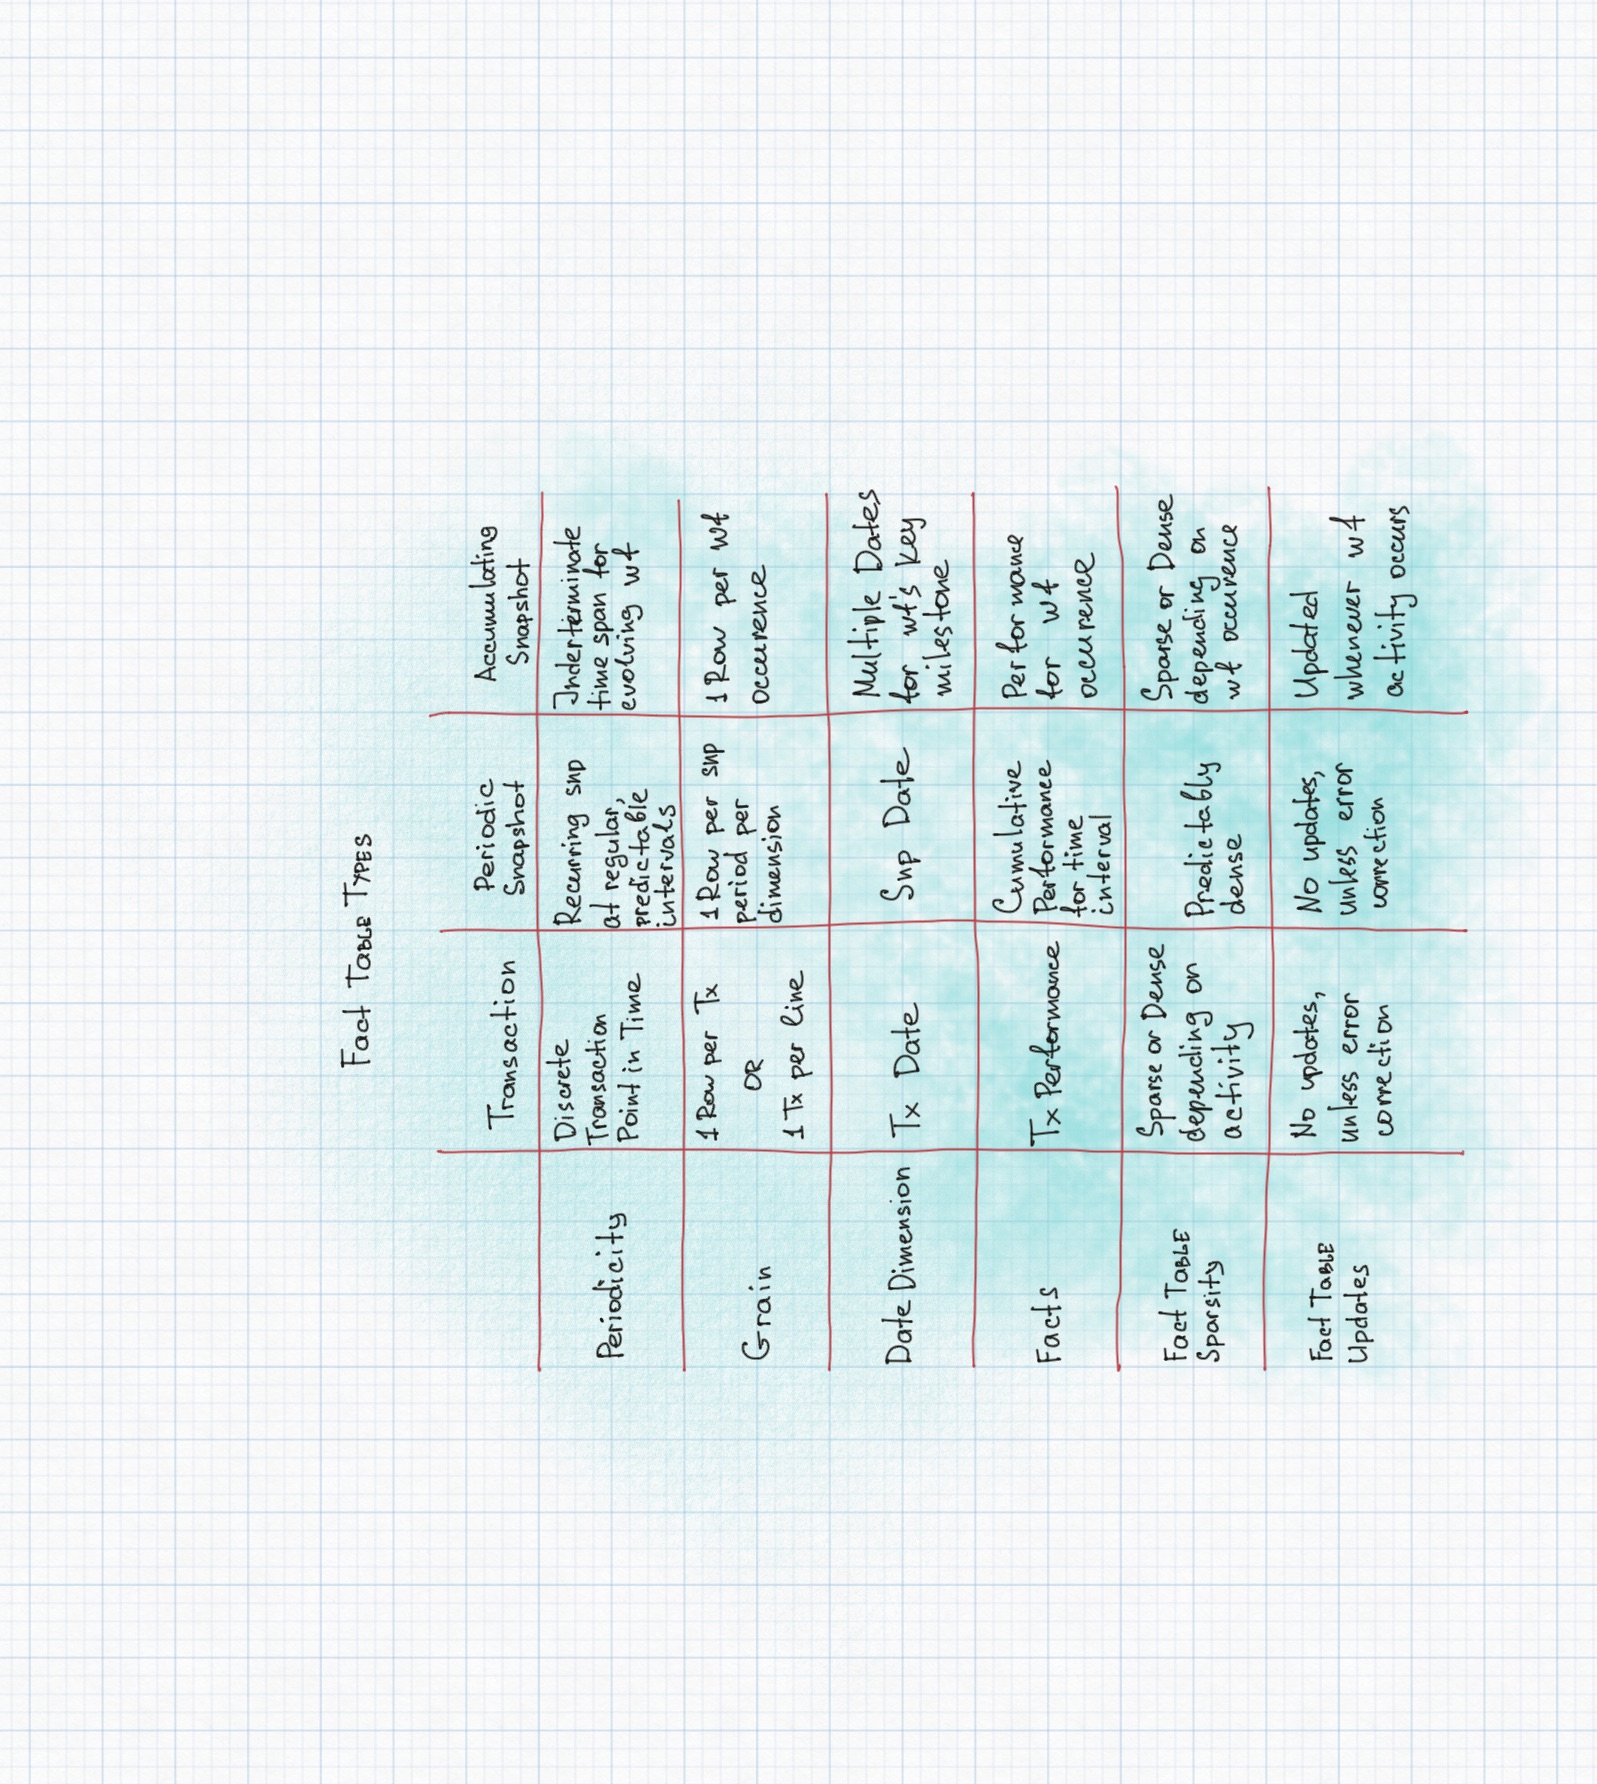 Fact Table Types
Transaction
Periodic
Snapshot
Accumulating
Snapshot
Periodicity
Discrete
Transaction
Point in Time
Recurring snp
at regular,
predictable
intervals
Inderterminate
time span for
evolving wf
Grain
1 Row per Tx
OR
1 Tx per line
1 Row per snp
period per
dimension
1 Row per wf
occurence
Date Dimension
Tx Date
Snp Date
Multiple Dates
for wf's key
milestone
Facts
Tx Performance
Cumulative
Performance
for time
interval
Performance
for wf
occurence
Fact Table
Sparsity
Sparse or Dense
depending on
activity
Predictably
dense
Sparse or Dense
depending on
wf occurence
Fact Table
Updates
No updates,
unless error
correction
No updates,
unless error
correction
Updated
whenever wf
activity occurs